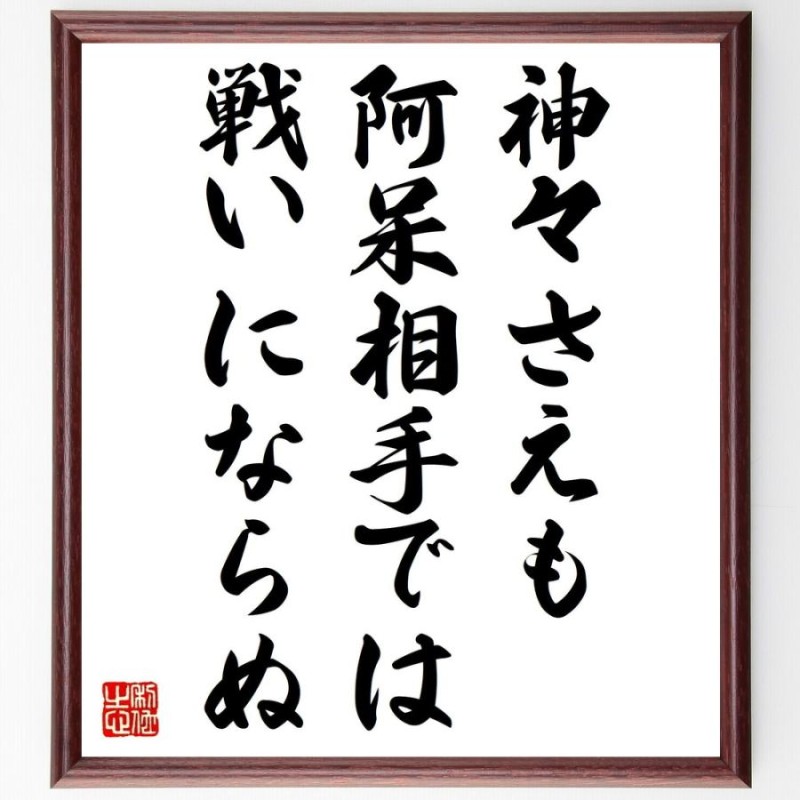 神々さえも
阿呆相手では
戦いにならぬ